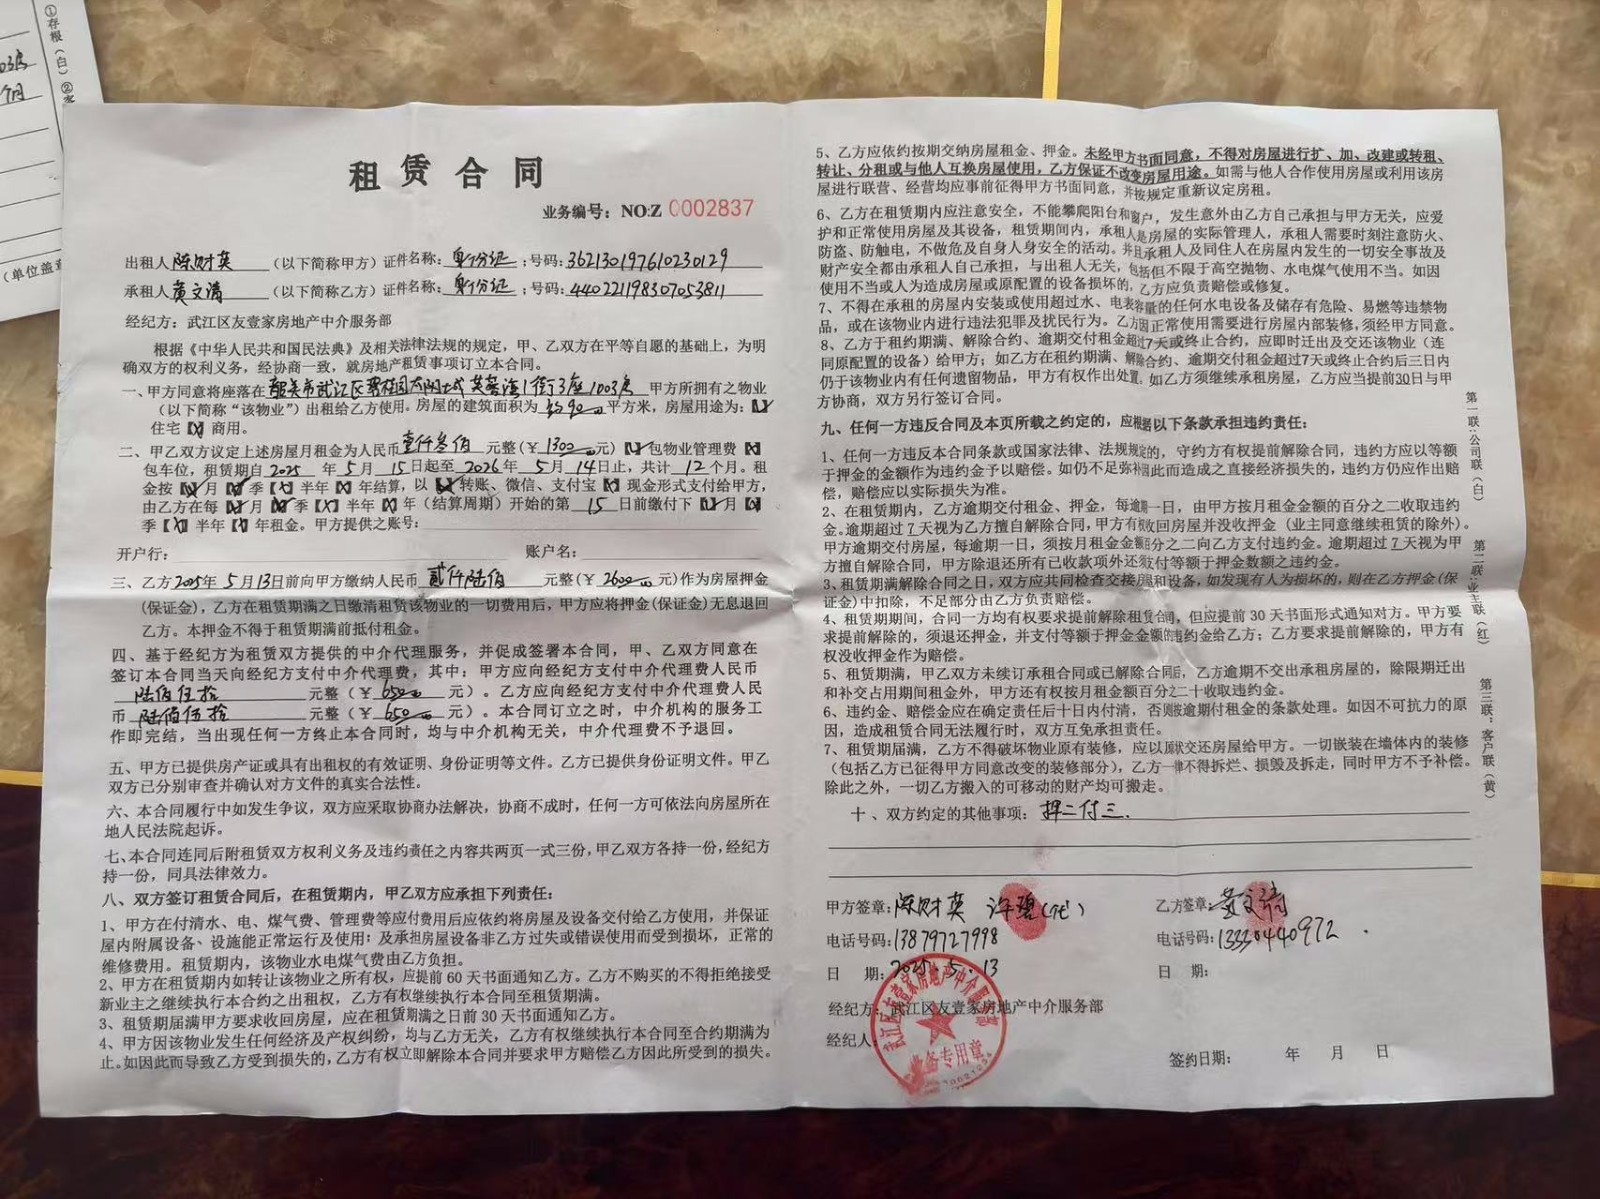 ①存根（白）②客
03房
个月
（单位盖章
租赁合同
业务编号：NO:Z 0002837
出租人陈财英（以下简称甲方）证件名称：身份证；号码：362130197610230129
承租人黄文清（以下简称乙方）证件名称：身份证；号码：440221198307053811
经纪方：武江区友壹家房地产中介服务部
根据《中华人民共和国民法典》及相关法律法规的规定，甲、乙双方在平等自愿的基础上，为明
确双方的权利义务，经协商一致，就房地产租赁事项订立本合同。
一、甲方同意将座落在韶关市武江区碧桂园太阳城芙蓉湾1街3座1003房 甲方所拥有之物业
（以下简称“该物业”）出租给乙方使用。房屋的建筑面积为约90平方米，房屋用途为：【✓】
住宅【×】商用。
二、甲方双方议定上述房屋月租金为人民币壹仟叁佰元整（￥1300元）【✓】包物业管理费【×】
包车位，租赁期自2025年5月15日起至2026年5月14日止，共计12个月。租
金按【】月【】季【×】半年【×】年结算，以【✓】转账、微信、支付宝【×】现金形式支付给甲方，
由乙方在每【】月【】季【×】半年【×】年（结算周期）开始的第15日前缴付下【】月【】
季【×】半年【×】年租金。甲方提供之账号：
开户行： 账户名：
三、乙方2025年5月13日前向甲方缴纳人民币贰仟陆佰元整（￥2600元）作为房屋押金
（保证金），乙方在租赁期满之日缴清租赁该物业的一切费用后，甲方应将押金（保证金）无息退回
乙方。本押金不得于租赁期满前抵付租金。
四、基于经纪方为租赁双方提供的中介代理服务，并促成签署本合同，甲、乙双方同意在
签订本合同当天向经纪方支付中介代理费，其中：甲方应向经纪方支付中介代理费人民币
陆佰伍拾元整（￥650元）。乙方应向经纪方支付中介代理费人民
币陆佰伍拾元整（￥650元）。本合同订立之时，中介机构的服务工
作即完结，当出现任何一方终止本合同时，均与中介机构无关，中介代理费不予退回。
五、甲方已提供房产证或具有出租权的有效证明、身份证明等文件。乙方已提供身份证明文件。甲乙
双方已分别审查并确认对方文件的真实合法性。
六、本合同履行中如发生争议，双方应采取协商办法解决，协商不成时，任何一方可依法向房屋所在
地人民法院起诉。
七、本合同连同后附租赁双方权利义务及违约责任之内容共两页一式三份，甲乙双方各持一份，经纪方
持一份，同具法律效力。
八、双方签订租赁合同后，在租赁期内，甲乙双方应承担下列责任：
1、甲方在付清水、电、煤气费、管理费等应付费用后应依约将房屋及设备交付给乙方使用，并保证
屋内附属设备、设施能正常运行及使用；及承担房屋设备非乙方过失或错误使用而受到损坏，正常的
维修费用。租赁期内，该物业水电煤气费由乙方负担。
2、甲方在租赁期内如转让该物业之所有权，应提前60天书面通知乙方。乙方不购买的不得拒绝接受
新业主之继续执行本合约之出租权，乙方有权继续执行本合同至租赁期满。
3、租赁期届满甲方要求收回房屋，应在租赁期满之日前30天书面通知乙方。
4、甲方因该物业发生任何经济及产权纠纷，均与乙方无关，乙方有权继续执行本合同至合约期满为
止。如因此而导致乙方受到损失的，乙方有权立即解除本合同并要求甲方赔偿乙方因此所受到的损失。
5、乙方应依约按期交纳房屋租金、押金。未经甲方书面同意，不得对房屋进行扩、加、改建或转租、
转让、分租或与他人互换房屋使用，乙方保证不改变房屋用途。如需与他人合作使用房屋或利用该房
屋进行联营、经营均应事前征得甲方书面同意，并按规定重新议定房租。
6、乙方在租赁期内应注意安全，不能攀爬阳台和窗户，发生意外由乙方自己承担与甲方无关，应爱
护和正常使用房屋及其设备，租赁期间内，承租人是房屋的实际管理人，承租人需要时刻注意防火、
防盗、防触电，不做危及自身人身安全的活动。并且承租人及同住人在房屋内发生的一切安全事故及
财产安全都由承租人自己承担，与出租人无关，包括但不限于高空抛物、水电煤气使用不当。如因
使用不当或人为造成房屋或原配置的设备损坏的，乙方应负责赔偿或修复。
7、不得在承租的房屋内安装或使用超过水、电表容量的任何水电设备及储存有危险、易燃等违禁物
品，或在该物业内进行违法犯罪及扰民行为。乙方因正常使用需要进行房屋内部装修，须经甲方同意。
8、乙方于租约期满、解除合约、逾期交付租金超过7天或终止合约，应即时迁出及交还该物业（连
同原配置的设备）给甲方；如乙方在租约期满、解除合约、逾期交付租金超过7天或终止合约后三日内
仍于该物业内有任何遗留物品，甲方有权作出处置。如乙方须继续承租房屋，乙方应当提前30日与甲
方协商，双方另行签订合同。
九、任何一方违反合同及本页所载之约定的，应根据以下条款承担违约责任：
1、任何一方违反本合同条款或国家法律、法规规定的，守约方有权提前解除合同，违约方应以等额
于押金的金额作为违约金予以赔偿。如仍不足弥补因此而造成之直接经济损失的，违约方仍应作出赔
偿，赔偿应以实际损失为准。
2、在租赁期内，乙方逾期交付租金、押金，每逾期一日，由甲方按月租金金额的百分之二收取违约
金。逾期超过7天视为乙方擅自解除合同，甲方有权收回房屋并没收押金（业主同意继续租赁的除外）。
甲方逾期交付房屋，每逾期一日，须按月租金金额百分之二向乙方支付违约金。逾期超过7天视为甲
方擅自解除合同，甲方除退还所有已收款项外还须付等额于押金数额之违约金。
3、租赁期满解除合同之日，双方应共同检查交接房屋和设备，如发现有人为损坏的，则在乙方押金（保
证金）中扣除，不足部分由乙方负责赔偿。
4、租赁期期间，合同一方均有权要求提前解除租赁合同，但应提前30天书面形式通知对方。甲方要
求提前解除的，须退还押金，并支付等额于押金金额的违约金给乙方；乙方要求提前解除的，甲方有
权没收押金作为赔偿。
5、租赁期满，甲乙双方未续订承租合同或已解除合同后，乙方逾期不交出承租房屋的，除限期迁出
和补交占用期间租金外，甲方还有权按月租金额百分之二十收取违约金。
6、违约金、赔偿金应在确定责任后十日内付清，否则按逾期付租金的条款处理。如因不可抗力的原
因，造成租赁合同无法履行时，双方互免承担责任。
7、租赁期届满，乙方不得破坏物业原有装修，应以原状交还房屋给甲方。一切嵌装在墙体内的装修
（包括乙方已征得甲方同意改变的装修部分），乙方一律不得拆烂、损毁及拆走，同时甲方不予补偿。
除此之外，一切乙方搬入的可移动的财产均可搬走。
十、双方约定的其他事项：押二付三.
甲方签章：陈财英 许碧（代）
电话号码：13879727998
日 期：2025.5.13
经纪方：武江区友壹家房地产中介服务部
经纪人：
乙方签章：黄文清
电话号码：13330440972.
日 期：
签约日期： 年 月 日
武江区友壹家房地产中介服务部
备专用章
第一联：公司联（白）
第二联：业主联（红）
第三联：客户联（黄）